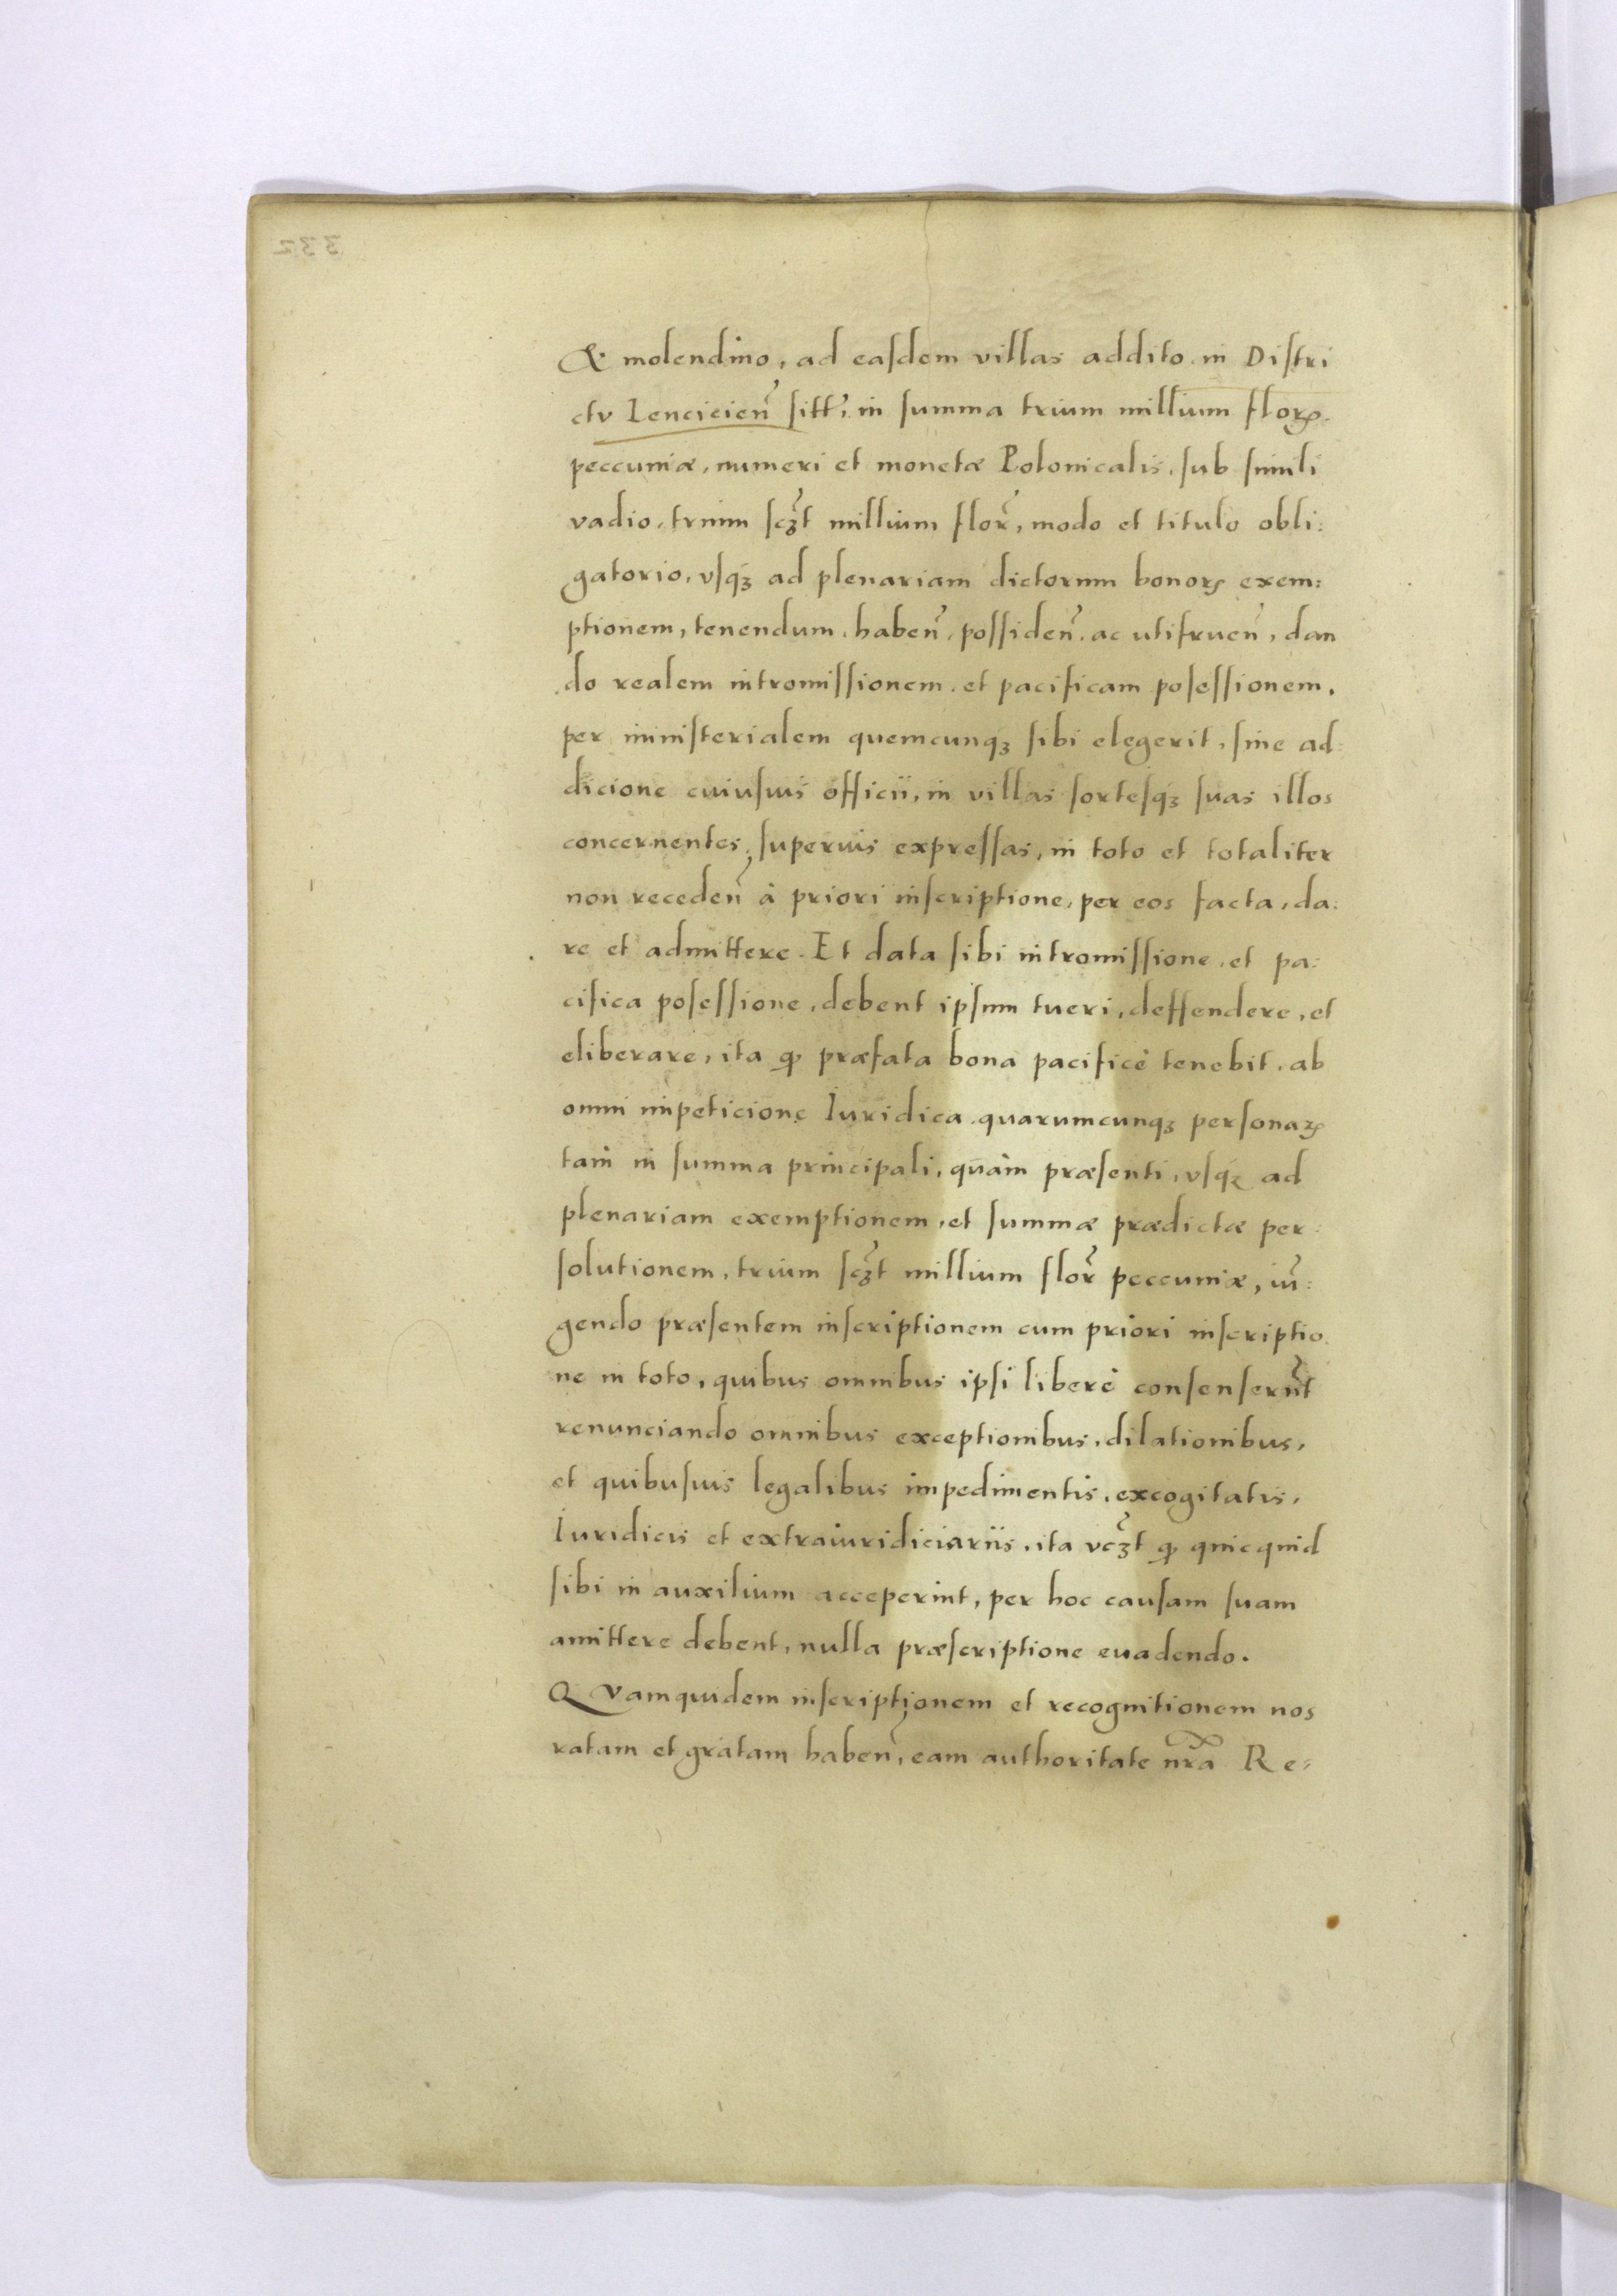 & molendino, ad easdem villas addito in Distri
ctv Lencicien̄ sitt̄, in summa trium millium floꝝ.
peccuniæ, numeri et monetæ Polonicalis, sub simili
vadio, trium scꝫt millium flor̄, modo et titulo obli:
gatorio, vsqꝫ ad plenariam dictorum bonoꝝ exem:
ptionem, tenendum, haben̄, possiden̄, ac utifruen̄, dan
do realem intromissionem, et pacificam posessionem,
per ministerialem quemcunqꝫ sibi elegerit, sine ad:
dicione cuiusuis officii, in villas sortesqꝫ suas illos
concernentes, superius expressas, in toto et totaliter
non receden̄ à priori inscriptione, per eos facta, da:
re et admittere. Et data sibi intromissione, et pa:
cifica posessione, debent ipsum tueri, deffendere, et
eliberare, ita ꝙ præfata bona pacificè tenebit, ab
omni impeticione Iuridica quarumcunqꝫ personaꝝ
tam in summa principali, quàm præsenti, vsqꝫ ad
plenariam exemptionem, et summæ prædictæ per:
solutionem, trium scꝫt millium flor̄ peccuniæ, iū:
gendo præsentem inscriptionem cum priori inscriptio:
ne in toto, quibus omnibus ipsi liberè consensern̄t
renunciando omnibus exceptionibus, dilationibus,
et quibusuis legalibus impedimentis, excogitatis,
Iuridicis et extraiuridiciariis, ita vcꝫt ꝙ quicquid
sibi in auxilium acceperint, per hoc causam suam
amittere debent, nulla præscriptione euadendo.
QVamquidem inscriptionem et recognitionem nos
ratam et gratam haben̄, eam authoritate nr̄a Re: